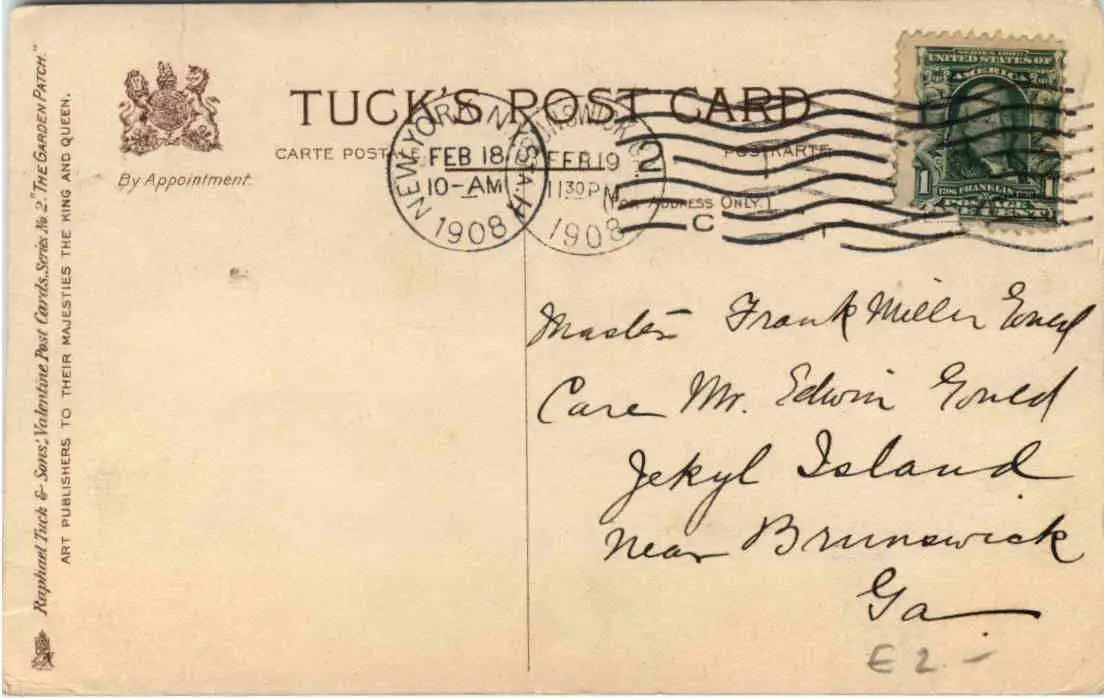 TUCK'S POST CARD
CARTE POSTALE POSTKARTE
(FOR ADDRESS ONLY.)
By Appointment.
Raphael Tuck & Sons' "Valentine Post Cards" Series No 2. "THE GARDEN PATCH."
ART PUBLISHERS TO THEIR MAJESTIES THE KING AND QUEEN.
NEW YORK N.Y.
STA. H
FEB 18
10-AM
1908
BRUNSWICK GA.
FEB 19
11 30 PM
1908
C
SERIES 1902
UNITED STATES OF
AMERICA
FRANKLIN
1 1
Master Frank Miller Gould
Care Mr. Edwin Gould
Jekyl Island
Near Brunswick
Ga
E 2 -